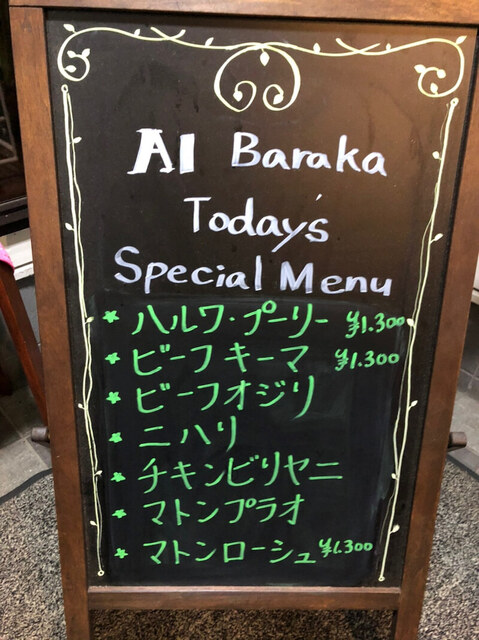 Al Baraka
Today's
Special Menu
* ハルワ・プーリー ¥1.300
* ビーフキーマ ¥1.300
* ビーフオジリ
* ニハリ
* チキンビリヤニ
* マトンプラオ
* マトンローシュ ¥1.300